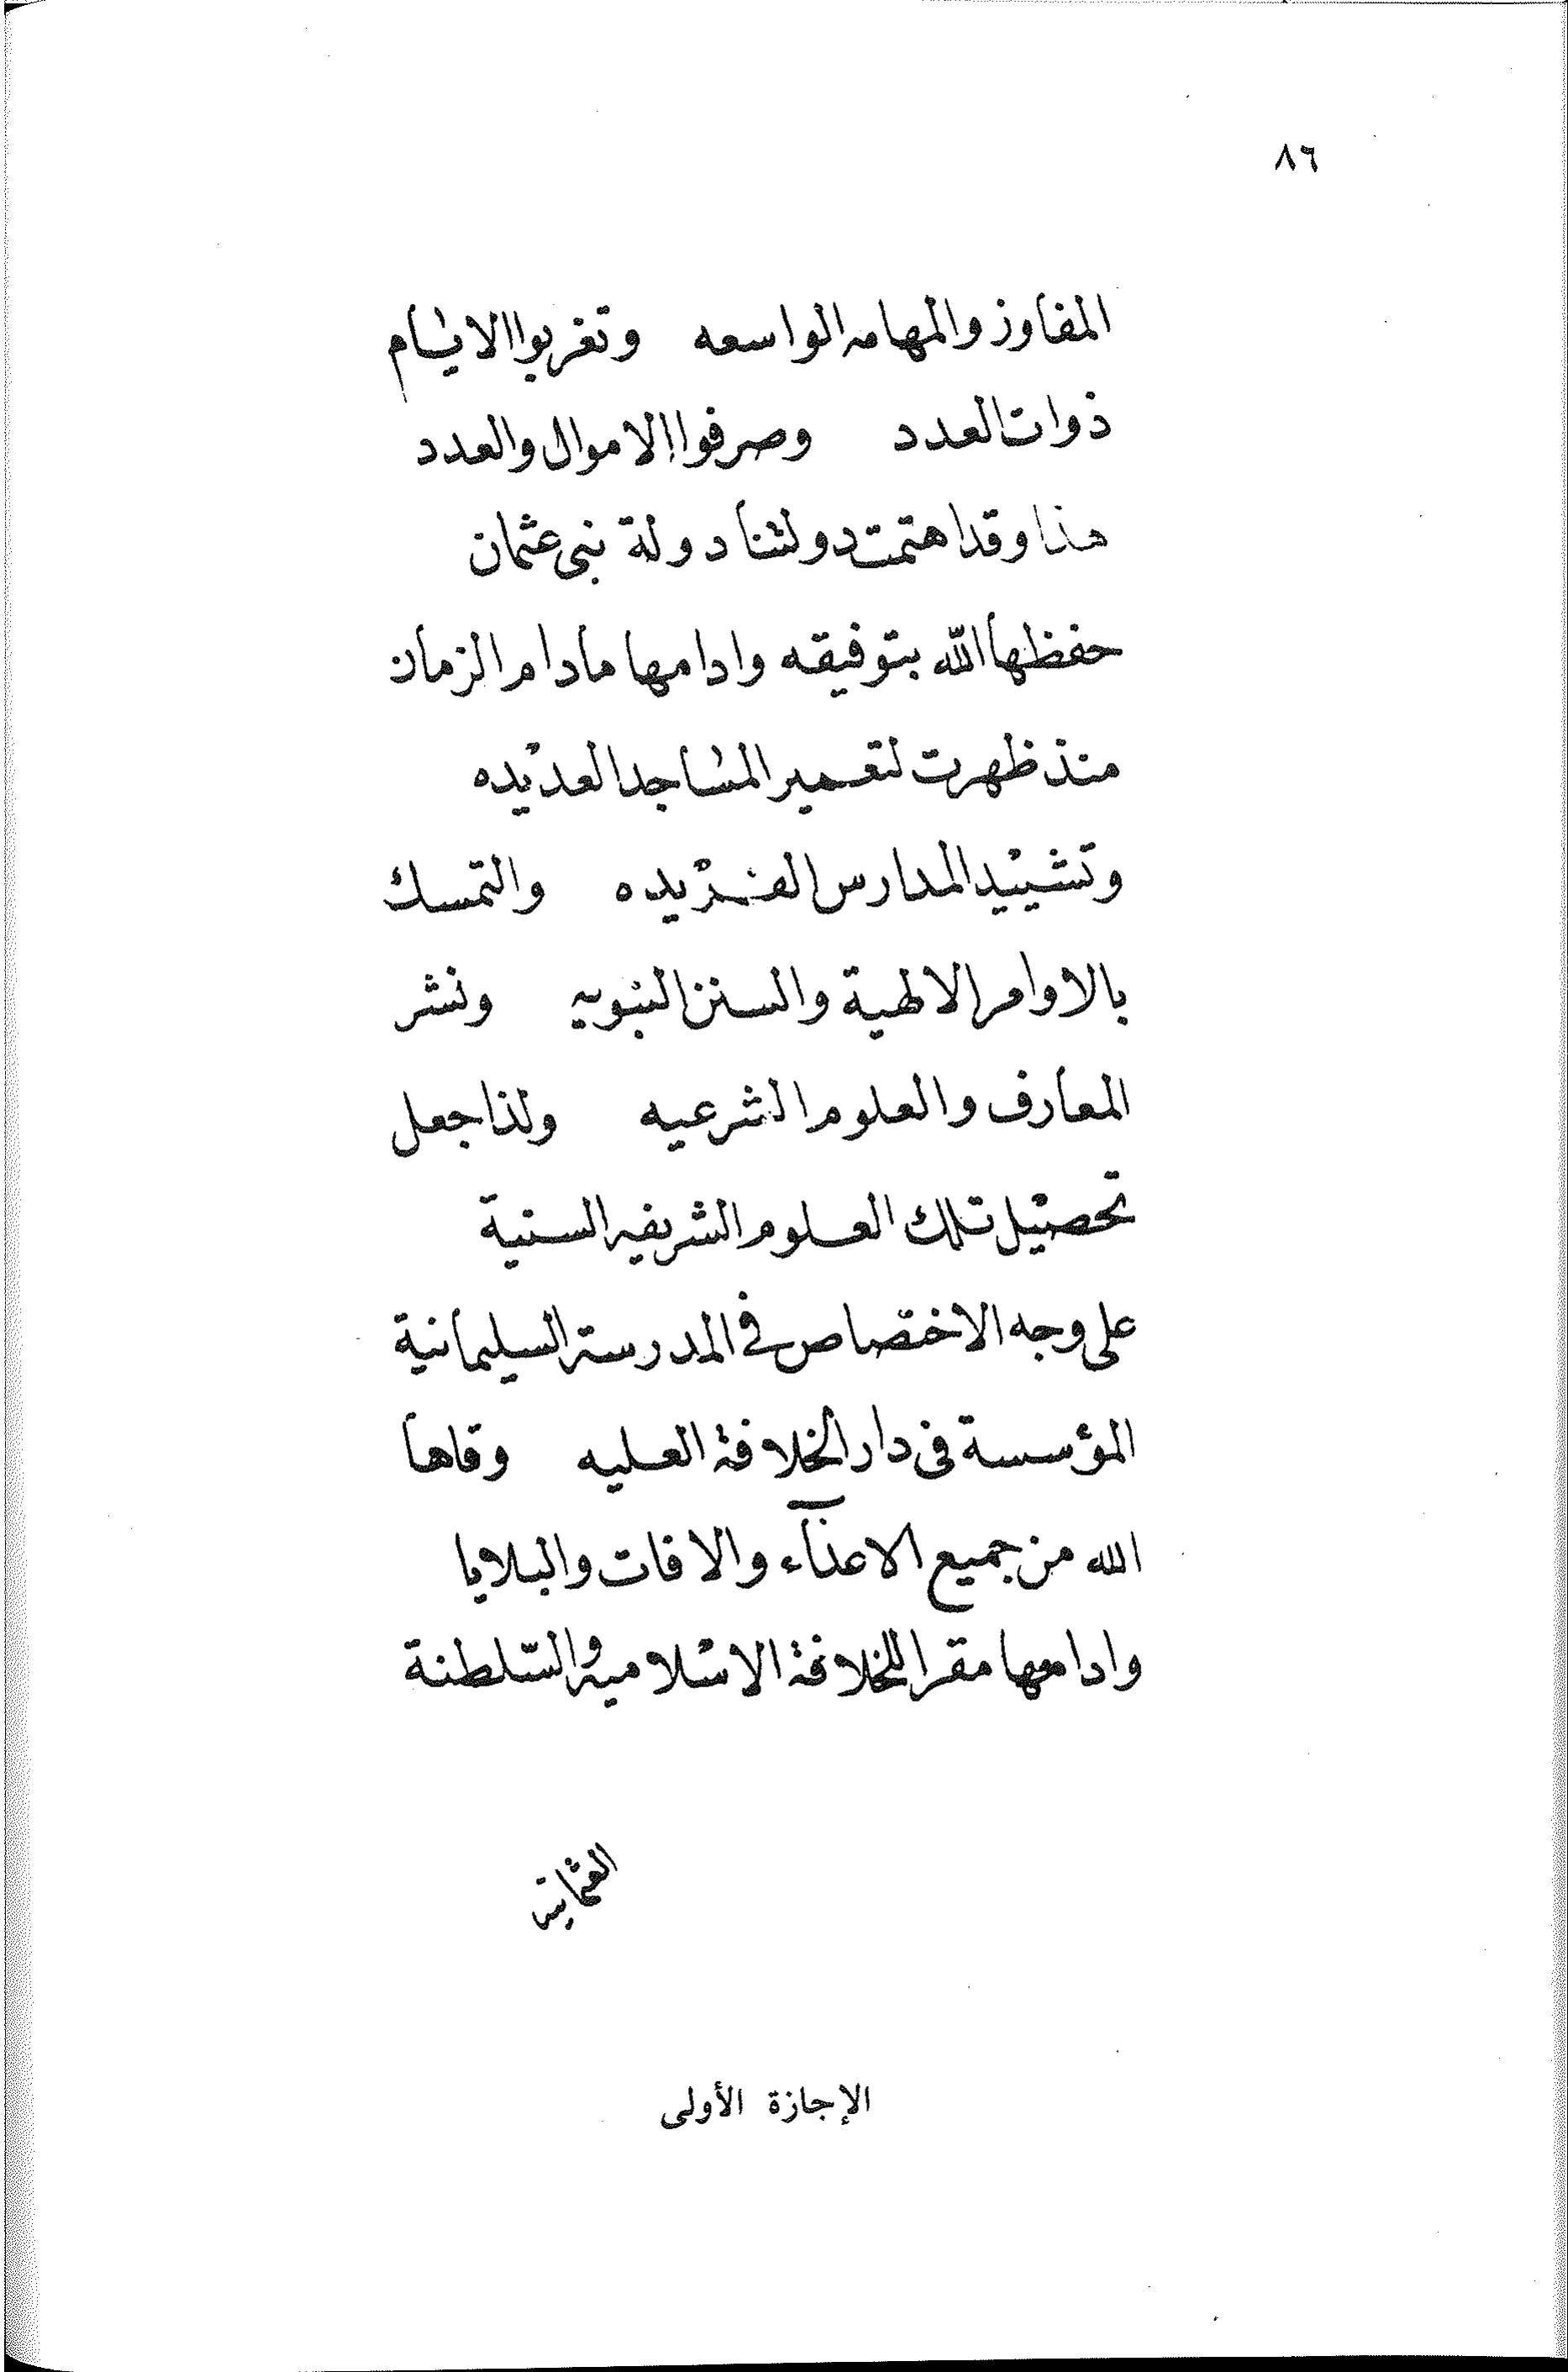 ٨٦
المفاوز والمهامه الواسعه وتغربوا الايام
ذوات العدد وصرفوا الاموال والعدد
هذا وقد اهتمت دولتنا دولة بنى عثمان
حفظها الله بتوفيقه وادامها مادام الزمان
منذ ظهرت لتعمير المساجد العديده
وتشييد المدارس الفريده والتمسك
بالاوامر الالهية والسنن النبويه ونشر
المعارف والعلوم الشرعيه ولذا جعل
تحصيل تلك العلوم الشريفه السنية
على وجه الاختصاص فى المدرسة السليمانية
المؤسسة فى دار الخلافة العليه وقاها
الله من جميع الاعدآء والافات والبلايا
وادامها مقرا للخلافة الاسلامية والسّلطنة
العثمانية
الإجازة الأولى